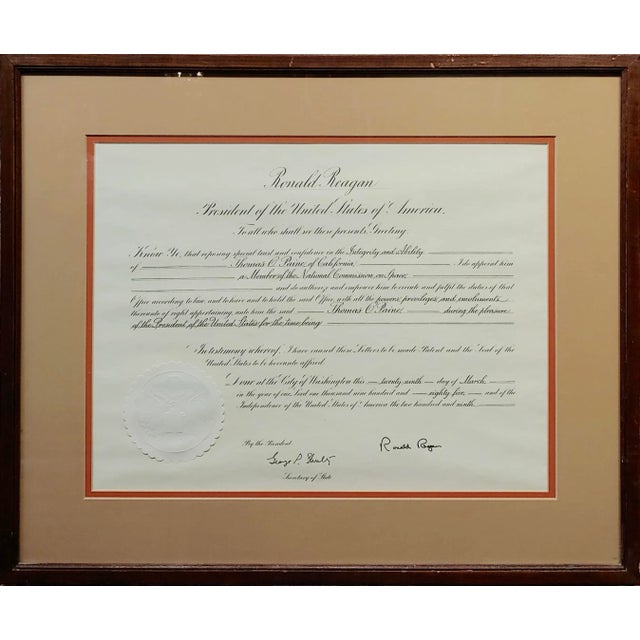 Ronald Reagan
President of the United States of America.
To all who shall see these presents, Greeting:
Know Ye, that reposing special trust and confidence in the Integrity and Ability
of Thomas O. Paine, of California, I do appoint him
a Member of the National Commission on Space,
and do authorize and empower him to execute and fulfil the duties of that
Office according to law, and to have and to hold the said Office, with all the powers, privileges, and emoluments
thereunto of right appertaining, unto him the said Thomas O. Paine, during the pleasure
of the President of the United States for the time being.
In testimony whereof, I have caused these Letters to be made Patent and the Seal of the
United States to be hereunto affixed.
Done at the City of Washington this twenty-ninth day of March,
in the year of our Lord one thousand nine hundred and eighty-five, and of the
Independence of the United States of America the two hundred and ninth.
By the President:
Ronald Reagan
George P. Shultz
Secretary of State